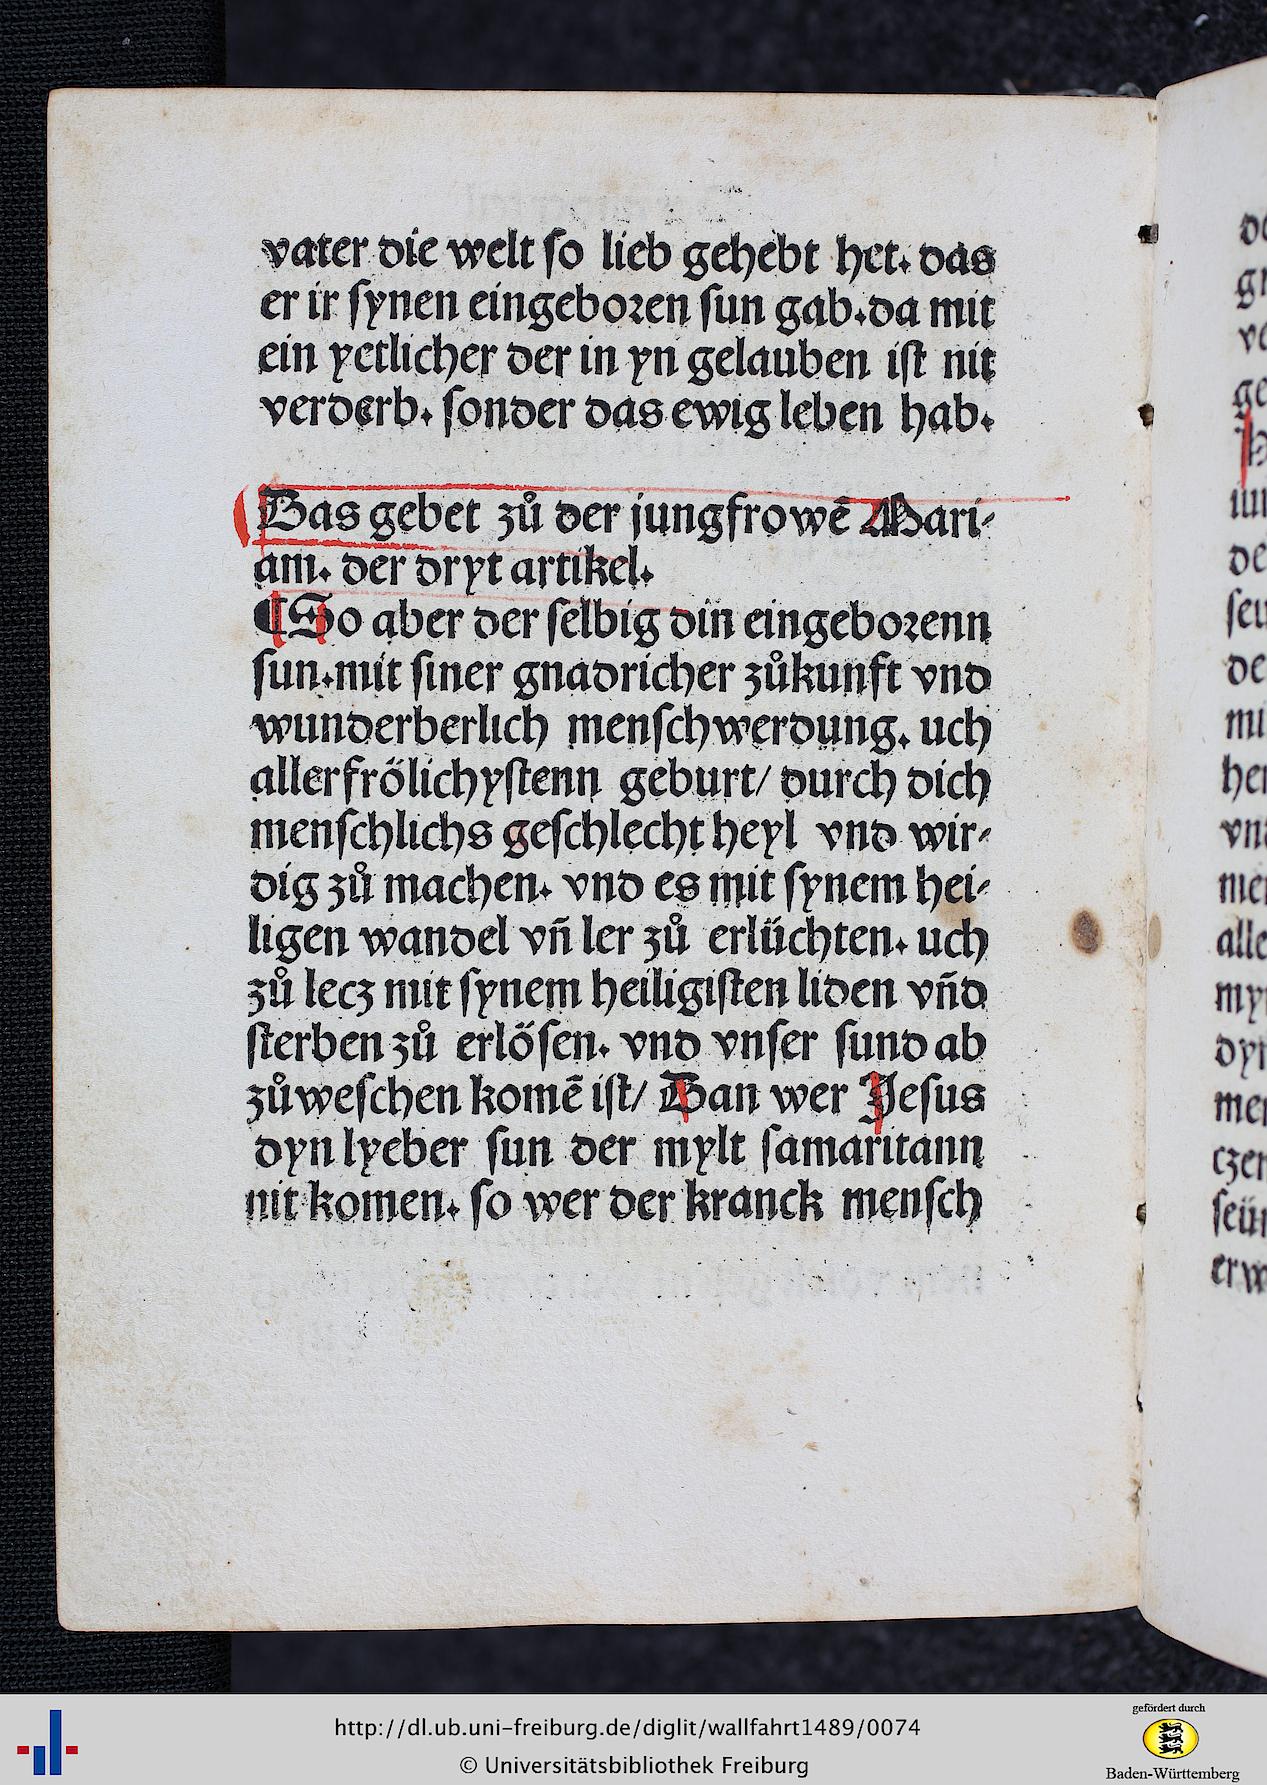 vater die welt ſo lieb gehebt het. das
er ir ſynen eingeboꝛen ſun gab. da mit
ein yetlicher der in yn gelauben iſt nit
verderb. ſonder das ewig leben hab.
Das gebet zů der jungfrowē Mari⸗
am. der dryt artikel.
¶ So aber der ſelbig din eingeboꝛenn
ſun. mit ſiner gnadricher zůkunft vnd
wunderberlich menſchwerdung. uch
allerfrölichyſtenn geburt/ durch dich
menſchlichs geſchlecht heyl vnd wir⸗
dig zů machen. vnd es mit ſynem hei⸗
ligen wandel vñ ler zů erlüchten. uch
zů lecz mit ſynem heiligiſten liden vñd
ſterben zů erlöſen. vnd vnſer ſund ab
zůweſchen komē iſt/ Dan wer Jeſus
dyn lyeber ſun der mylt ſamaritann
nit komen. ſo wer der kranck menſch
http://dl.ub.uni-freiburg.de/diglit/wallfahrt1489/0074
© Universitätsbibliothek Freiburg
gefördert durch
Baden-Württemberg